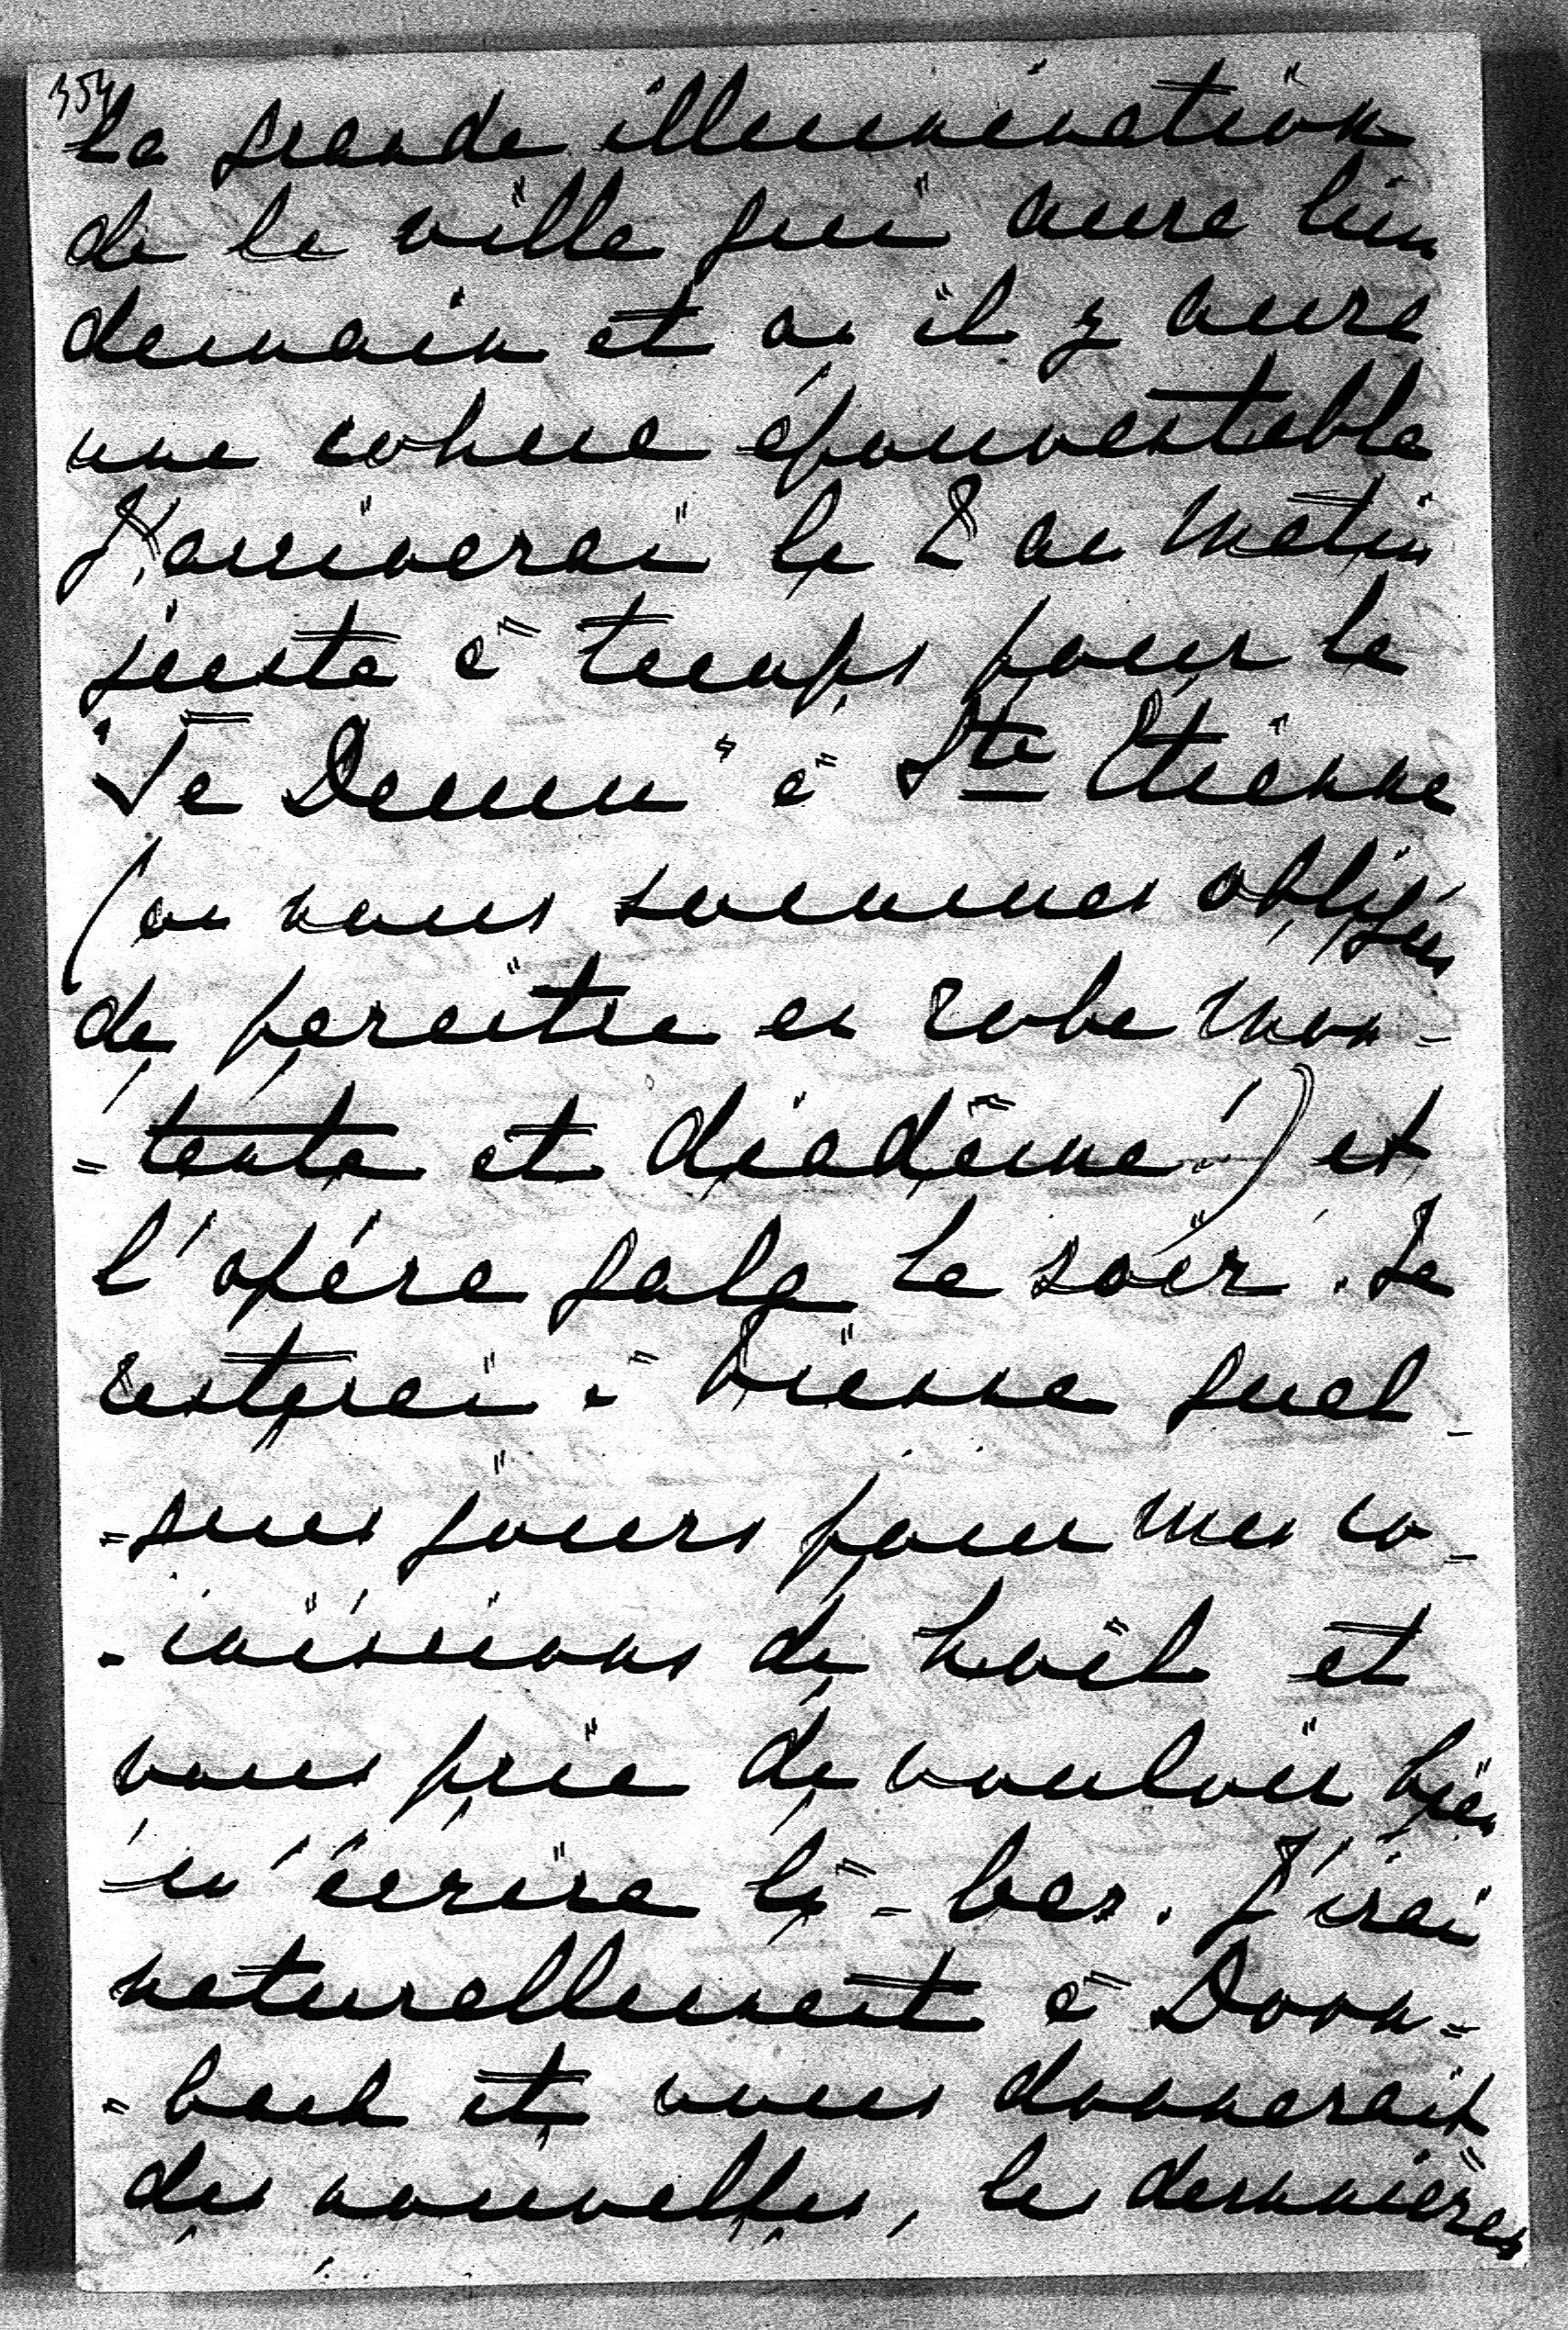 354
la grande illumination
de la ville qui aura lieu
demain et où il y aura
une cohue épouvantable
J'arriverai le 2 au matin
juste à temps pour le
"Te Deum" à Ste Etienne
(où nous sommes obligées
de paraître en robe mon=
=tante et diadème!) et
l'opéra gala le soir. Je
resterai à Vienne quel-
=ques jours pour mes co-
-missions de Noël et
vous prie de vouloir bien
m'écrire là-bas. J'irai
naturellement à Dorn=
=bach et vous donnerait
des nouvelles, les dernnières